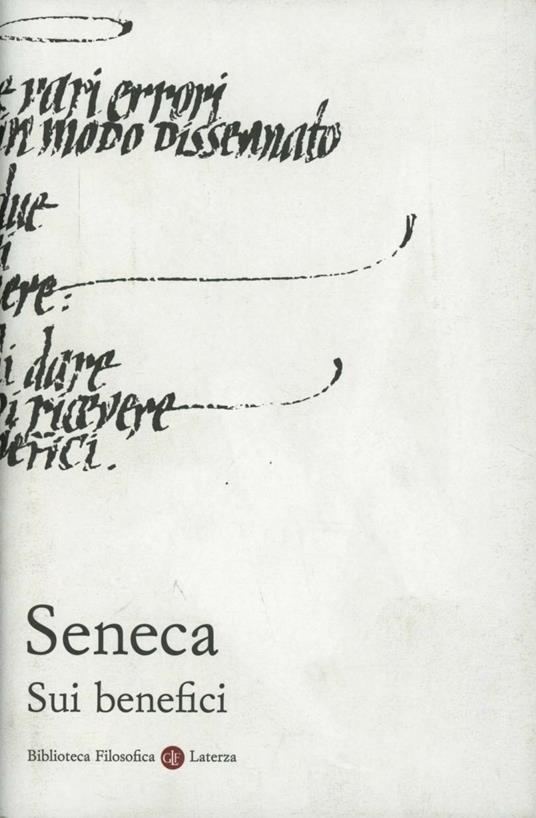 e rari errori
in modo dissennato
due
i
ere:
i dare
i ricevere
nefici.
Seneca
Sui benefici
Biblioteca Filosofica GLF Laterza